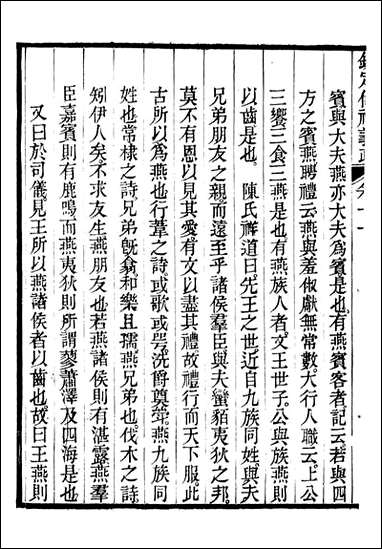 欽定儀禮義疏 卷十一
賓與大夫燕亦大夫為賓是也有燕賓客者記云若與四
方之賓燕聘禮云燕與羞俶獻無常數大行人職云上公
三饗三食三燕是也有燕族人者文王世子公與族燕則
以齒是也 陳氏祥道曰先王之世近自九族同姓與夫
兄弟朋友之親而遠至乎諸侯羣臣與夫蠻貊夷狄之邦
莫不有恩以見其愛有文以盡其禮故禮行而天下服此
古所以為燕也行葦之詩或歌或咢洗爵奠斝燕九族同
姓也常棣之詩兄弟旣翕和樂且孺燕兄弟也伐木之詩
矧伊人矣不求友生燕朋友也若燕諸侯則有湛露燕羣
臣嘉賓則有鹿鳴而燕夷狄則所謂蓼蕭澤及四海是也
又曰於司儀見王所以燕諸侯者以齒也故曰王燕則